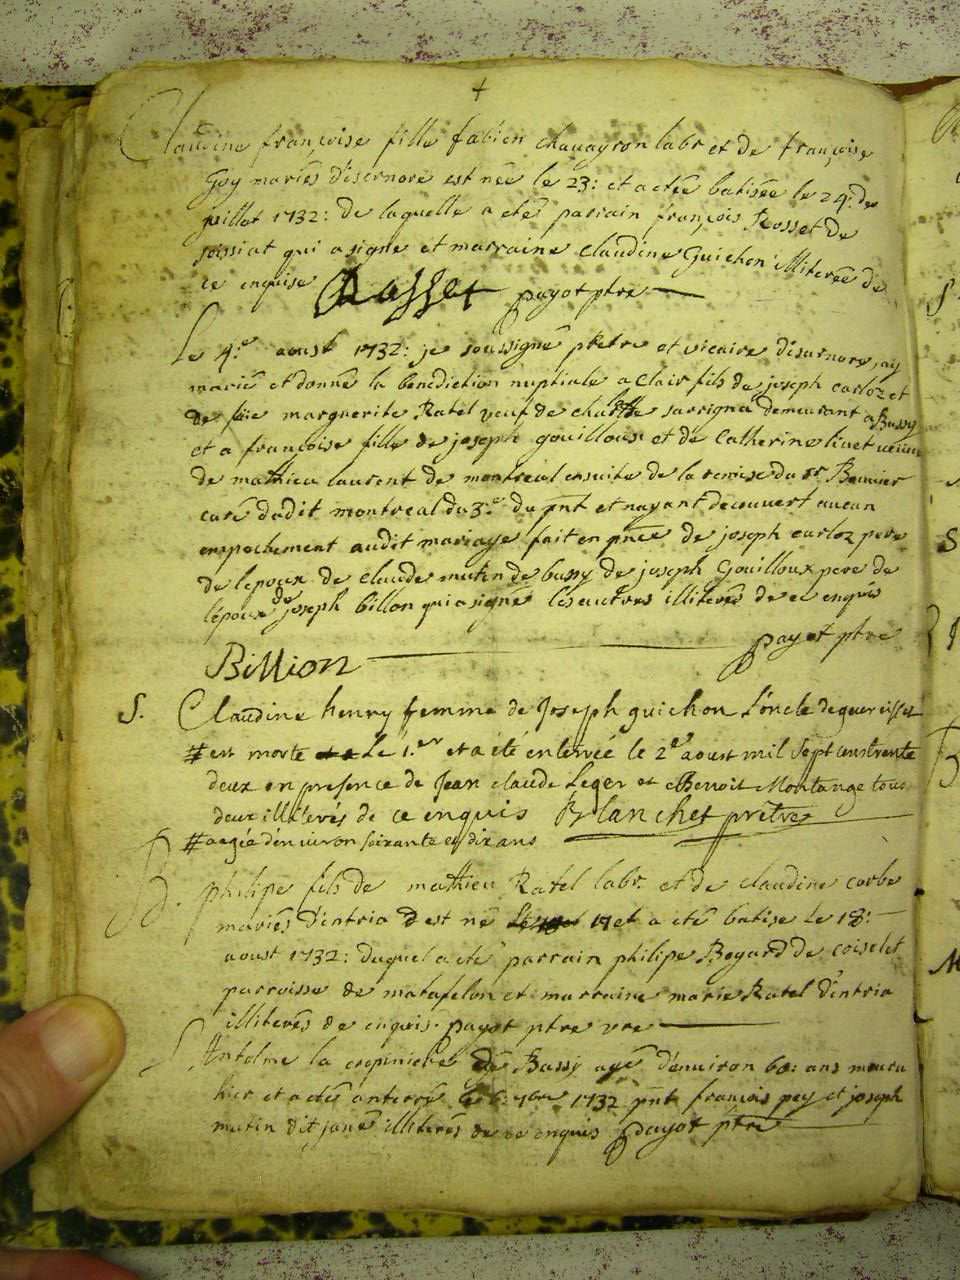 +
Claudine françoise fille fabien chavagron labr et de françoise
Goy mariés disernore est née le 23: et a etée batisée le 24e de
juillet 1732: de laquelle a eté parrain françois Rosset de
soissiat qui a signé et marraine claudine Guichon illiterée de
ce enquise Rosset payot ptre
Le 4e aoust 1732: je soussigné prêtre et vicaire disernore, ay
marié et donné la benediction nuptiale a Clair fils de joseph carloz et
de feüe marguerite Ratel veuf de charlotte sarrigna demeurant a Bussy
et a françoise fille de joseph gouilloux et de Catherine livet veuve
de mathieu laurent de montreal ensuite de la remise du sr Bernier
curé dudit montreal du 3e du pnt et nayant decouvert aucun
empechement audit mariage fait en pnce de joseph carloz pere
de lepoux de claude mutin de bussy de joseph Gouilloux pere de
lépouse de joseph billon qui a signé les autres illiterés de ce enquis
payot ptre
Billion
S. Claudine henry femme de Joseph guichon L'oncle de geovreisset
# est morte Le 1.er et a été enterrée le 2e aoust mil sept cens trente
deux en presence de Jean claude Leger et Benoit Montange tous
deux illiterés de ce enquis Blanchet prêtre
# aagée d'environ soixante et dix ans
B. philipe fils de mathieu Ratel labr. et de claudine corbe
mariés d'intria est né 17 et a eté batisé le 18:
aoust 1732: duquel a eté parrain philipe Bogard de coiselet
parroisse de matafelon et marraine marie Ratel d'intria
illiterés de enquis. payot ptre vre
S. Antelme la crepiniere de Bussy agé d'environ 60: ans mouru
hier et a etée enterré le 6: 7bre 1732 pnt françois pey et joseph
mutin dit jané illiterés de ce enquis payot ptre